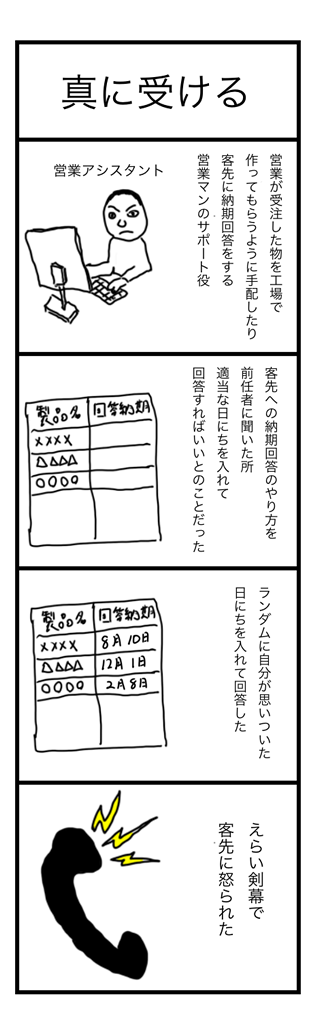 真に受ける
営業アシスタント
営業が受注した物を工場で
作ってもらうように手配したり
客先に納期回答をする
営業マンのサポート役
客先への納期回答のやり方を
前任者に聞いた所
適当な日にちを入れて
回答すればいいとのことだった
製品名 回答納期
××××
△△△△
○○○○
ランダムに自分が思いついた
日にちを入れて回答した
製品名 回答納期
×××× 8月10日
△△△△ 12月1日
○○○○ 2月8日
えらい剣幕で
客先に怒られた